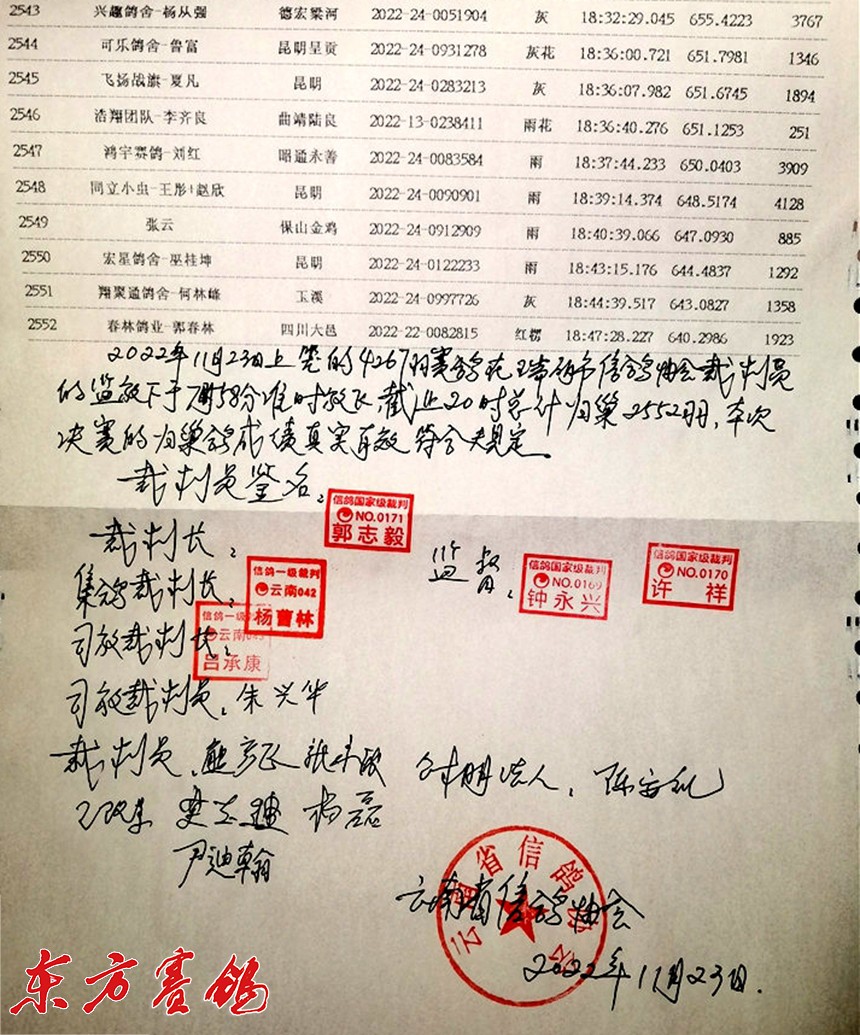 2543 兴趣鸽舍-杨从强 德宏梁河 2022-24-0051904 灰 18:32:29.045 655.4223 3767
2544 可乐鸽舍-鲁富 昆明呈贡 2022-24-0931278 灰花 18:36:00.721 651.7981 1346
2545 飞扬战旗-夏凡 昆明 2022-24-0283213 灰 18:36:07.982 651.6745 1894
2546 浩翔团队-李齐良 曲靖陆良 2022-13-0238411 雨花 18:36:40.276 651.1253 251
2547 鸿宇赛鸽-刘红 昭通永善 2022-24-0083584 雨 18:37:44.233 650.0403 3909
2548 同立小虫-王彤+赵欣 昆明 2022-24-0090901 雨 18:39:14.374 648.5174 4128
2549 张云 保山金鸡 2022-24-0912909 雨 18:40:39.066 647.0930 885
2550 宏星鸽舍-巫桂坤 昆明 2022-24-0122233 雨 18:43:15.176 644.4837 1292
2551 翔聚通鸽舍-何林峰 玉溪 2022-24-0997726 灰 18:44:39.517 643.0827 1358
2552 春林鸽业-郭春林 四川大邑 2022-22-0082815 红楞 18:47:28.227 640.2986 1923
2022年11月23日上笼的4267羽赛鸽在瑞丽市信鸽协会裁判员
的监放下于7时58分准时放飞,截止20时总计归巢2552羽,本次
决赛的归巢鸽成绩真实有效符合规定。
裁判员签名:
信鸽国家级裁判
NO.0171
郭志毅
裁判长:
监督:
信鸽国家级裁判
NO.0169
钟永兴
信鸽国家级裁判
NO.0170
许祥
集鸽裁判长:
信鸽一级裁判
云南042
杨曹林
司放裁判长:
信鸽一级
云南043
吕承康
司放裁判员:朱兴华
裁判员:
杨磊
尹迪翰
云南省信鸽协会
云南省信鸽协会
2022年11月23日.
东方赛鸽